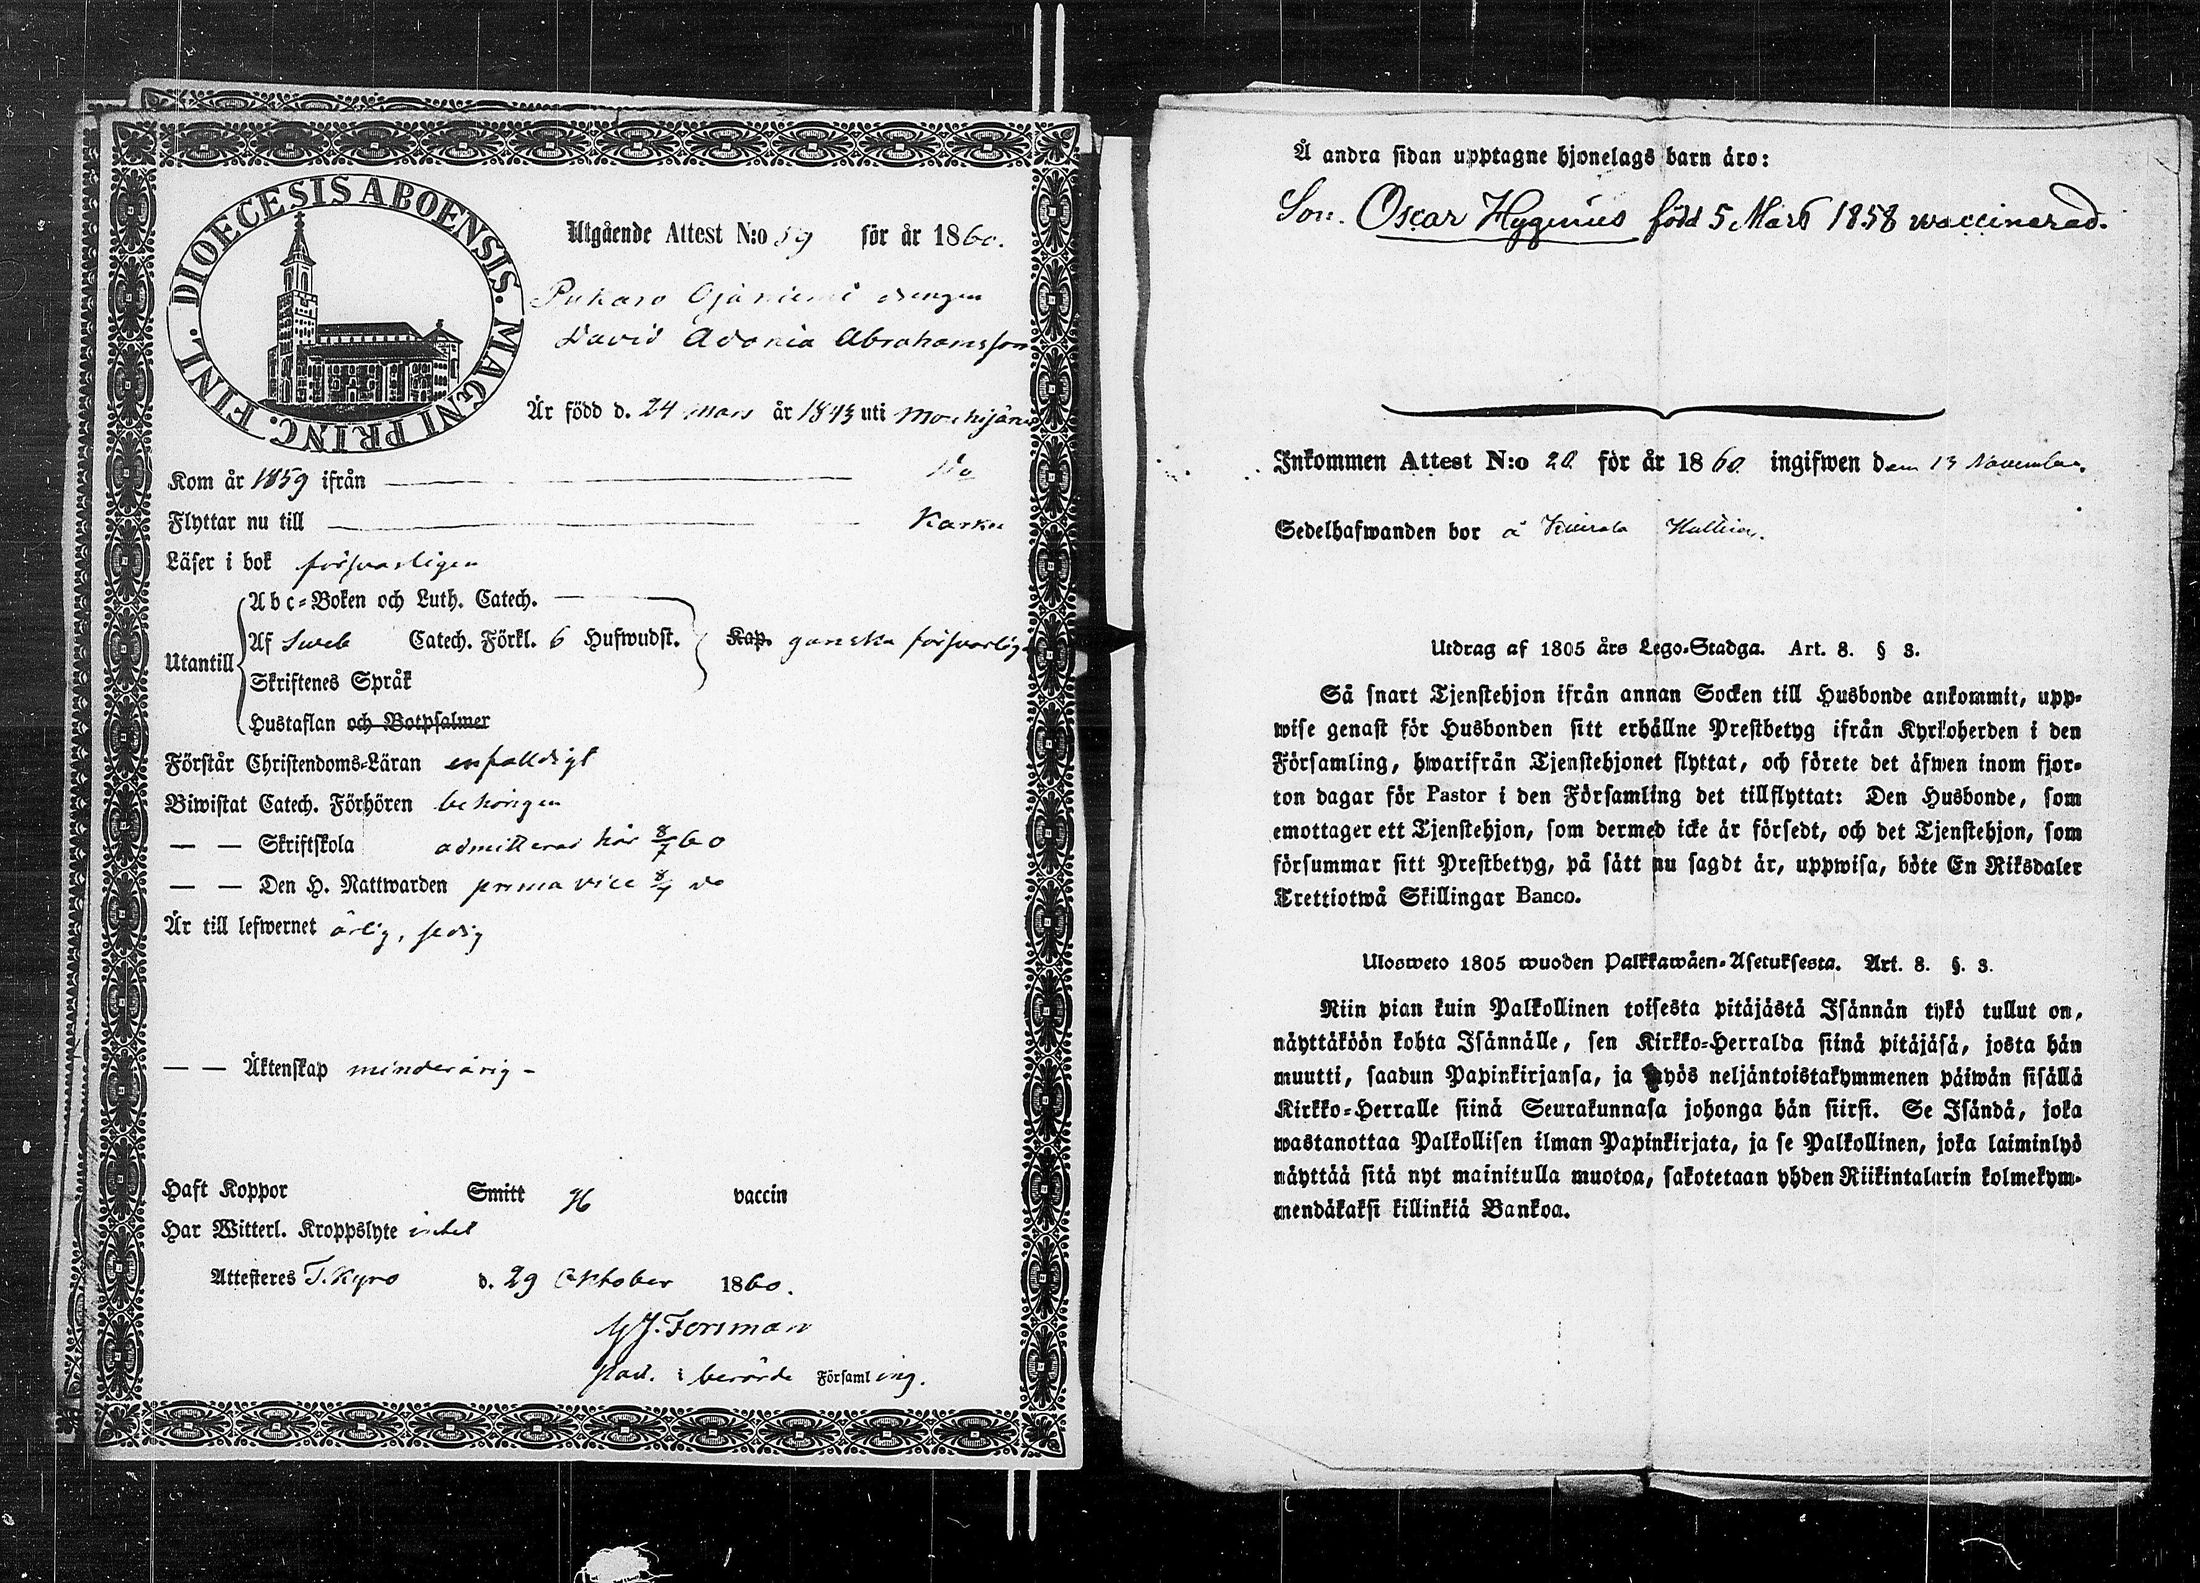 DIOECESIS ABOENSIS. MAGNI PRINC. FINL.
Utgående Attest N:o 59 för år 1860.
Ojaniemi drengen
David Adonia Abrahamsson
Är född d. 24 Mars år 1843 uti Mouhijärvi
Kom år 1859 ifrån Do
Flyttar nu till Karku
Läser i bok försvarligen
Utantill
Abc-Boken och Luth. Catech.
Af Sweb Catech. Förkl. 6 Hufwudst. Kap. ganska försvarlig.
Skriftenes Språk
Hustaflan och Botpsalmer
Förstår Christendoms-Läran enfalldigt
Biwistat Catech. Förhören behörigen
— — Skriftskola admitterad här 8/7 60
— — Den H. Nattwarden prima vice 8/7 do
Är till lefwernet ärlig, sedig
— — Äktenskap minderårig -
Haft Koppor Smitt H vaccin
Har Witterl. Kroppslyte intet
Attesteres T. Kyro d. 29 Oktober 1860.
Forsman
Past. i berörde Församling.
Å andra sidan upptagne hjonelags barn äro:
Son. Oscar Hyginus född 5 Mars 1858 waccinerad.
Inkommen Attest N:o 20 för år 1860 ingifwen den 13 November.
Sedelhafwanden bor å
Utdrag af 1805 års Lego-Stadga. Art. 8. § 3.
Så snart Tjenstehjon ifrån annan Socken till Husbonde ankommit, upp-
wise genast för Husbonden sitt erhållne Prestbetyg ifrån Kyrkoherden i den
Församling, hwarifrån Tjenstehjonet flyttat, och förete det äfwen inom fjor-
ton dagar för Pastor i den Församling det tillflyttat: Den Husbonde, som
emottager ett Tjenstehjon, som dermed icke är försedt, och det Tjenstehjon, som
försummar sitt Prestbetyg, på sätt nu sagdt är, uppwisa, böte En Riksdaler
Trettiotwå Skillingar Banco.
Uloosweto 1805 wuoden Palkkawäen-Asetuksesta. Art. 8. §. 3.
Niin pian kuin Palkollinen toisesta pitäjästä Isännän tykö tullut on,
näyttäköön kohta Isännälle, sen Kirkko-Herralda siinä pitäjäsä, josta hän
muutti, saadun Papinkirjansa, ja myös neljäntoistakymmenen päiwän sisällä
Kirkko-Herralle siinä Seurakunnasa johonga hän siirsi. Se Isändä, joka
wastanottaa Palkollisen ilman Papinkirjata, ja se Palkollinen, joka laiminlyö
näyttää sitä nyt mainitulla muotoa, sakotetaan yhden Riikintalarin kolmekym-
mendäkaksi killinkiä Bankoa.